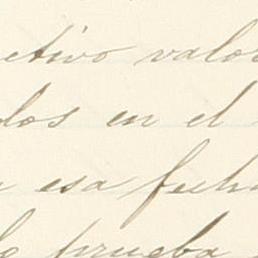 ctivo valor
los en el
esa fecha
prueba